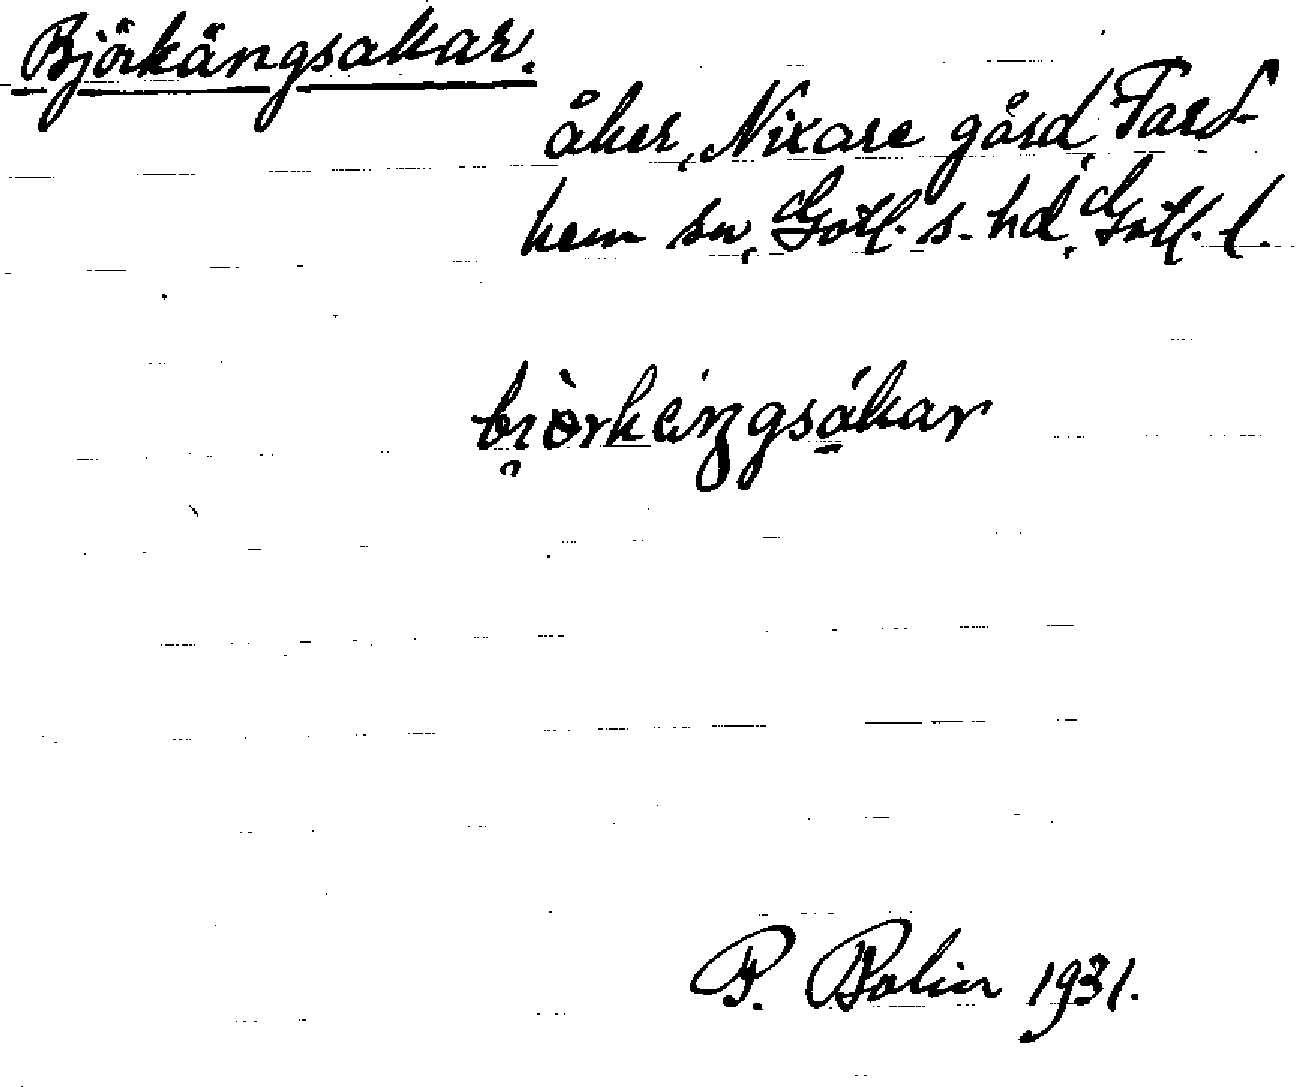 Björkängsakar.
åker, Nixare gård, Fard-
hem sn, Gotl. s. hd, Gotl. l.
bi̯òrkäŋgsákar
P. Bolin 1931.